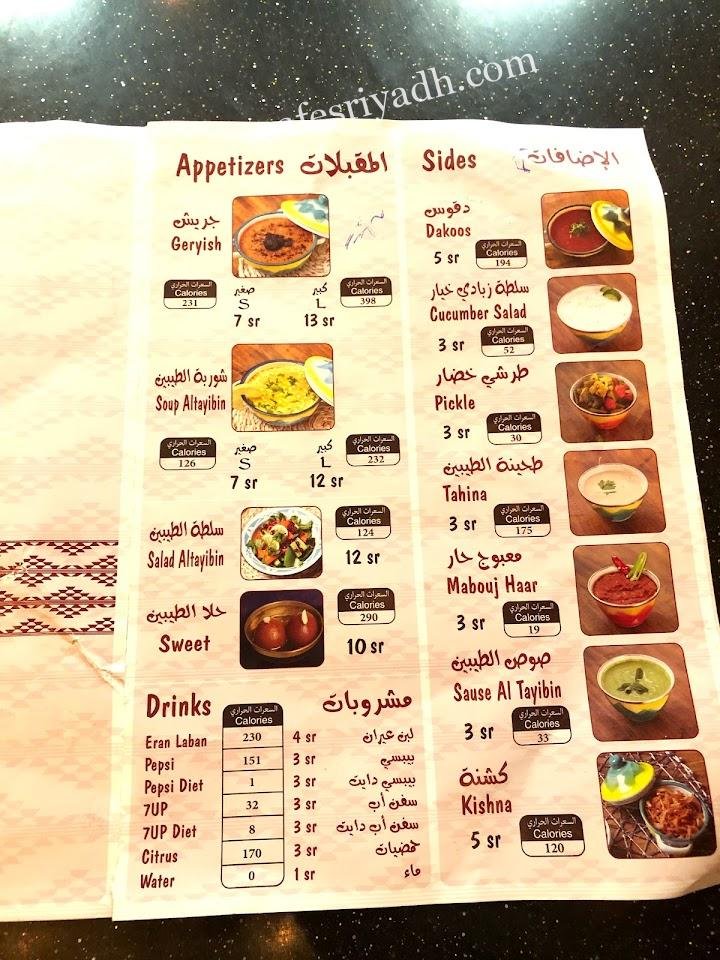 afesriyadh.com
Appetizers المقبلات
جريش
Geryish
السعرات الحراري
Calories
231
صغير
S
7 sr
كبير
L
13 sr
السعرات الحراري
Calories
398
شوربة الطيبين
Soup Altayibin
السعرات الحراري
Calories
126
صغير
S
7 sr
كبير
L
12 sr
السعرات الحراري
Calories
232
سلطة الطيبين
Salad Altayibin
السعرات الحراري
Calories
124
12 sr
حلا الطيبين
Sweet
السعرات الحراري
Calories
290
10 sr
Drinks مشروبات
السعرات الحراري
Calories
Eran Laban 230 4 sr لبن عيران
Pepsi 151 3 sr بيبسي
Pepsi Diet 1 3 sr بيبسي دايت
7UP 32 3 sr سفن أب
7UP Diet 8 3 sr سفن أب دايت
Citrus 170 3 sr حمضيات
Water 0 1 sr ماء
Sides الإضافات
دقوس
Dakoos
5 sr
السعرات الحراري
Calories
194
سلطة زبادي خيار
Cucumber Salad
3 sr
السعرات الحراري
Calories
52
طرشي خضار
Pickle
3 sr
السعرات الحراري
Calories
30
طحينة الطيبين
Tahina
3 sr
السعرات الحراري
Calories
175
معبوج حار
Mabouj Haar
3 sr
السعرات الحراري
Calories
19
صوص الطيبين
Sause Al Tayibin
3 sr
السعرات الحراري
Calories
33
كشنة
Kishna
5 sr
السعرات الحراري
Calories
120